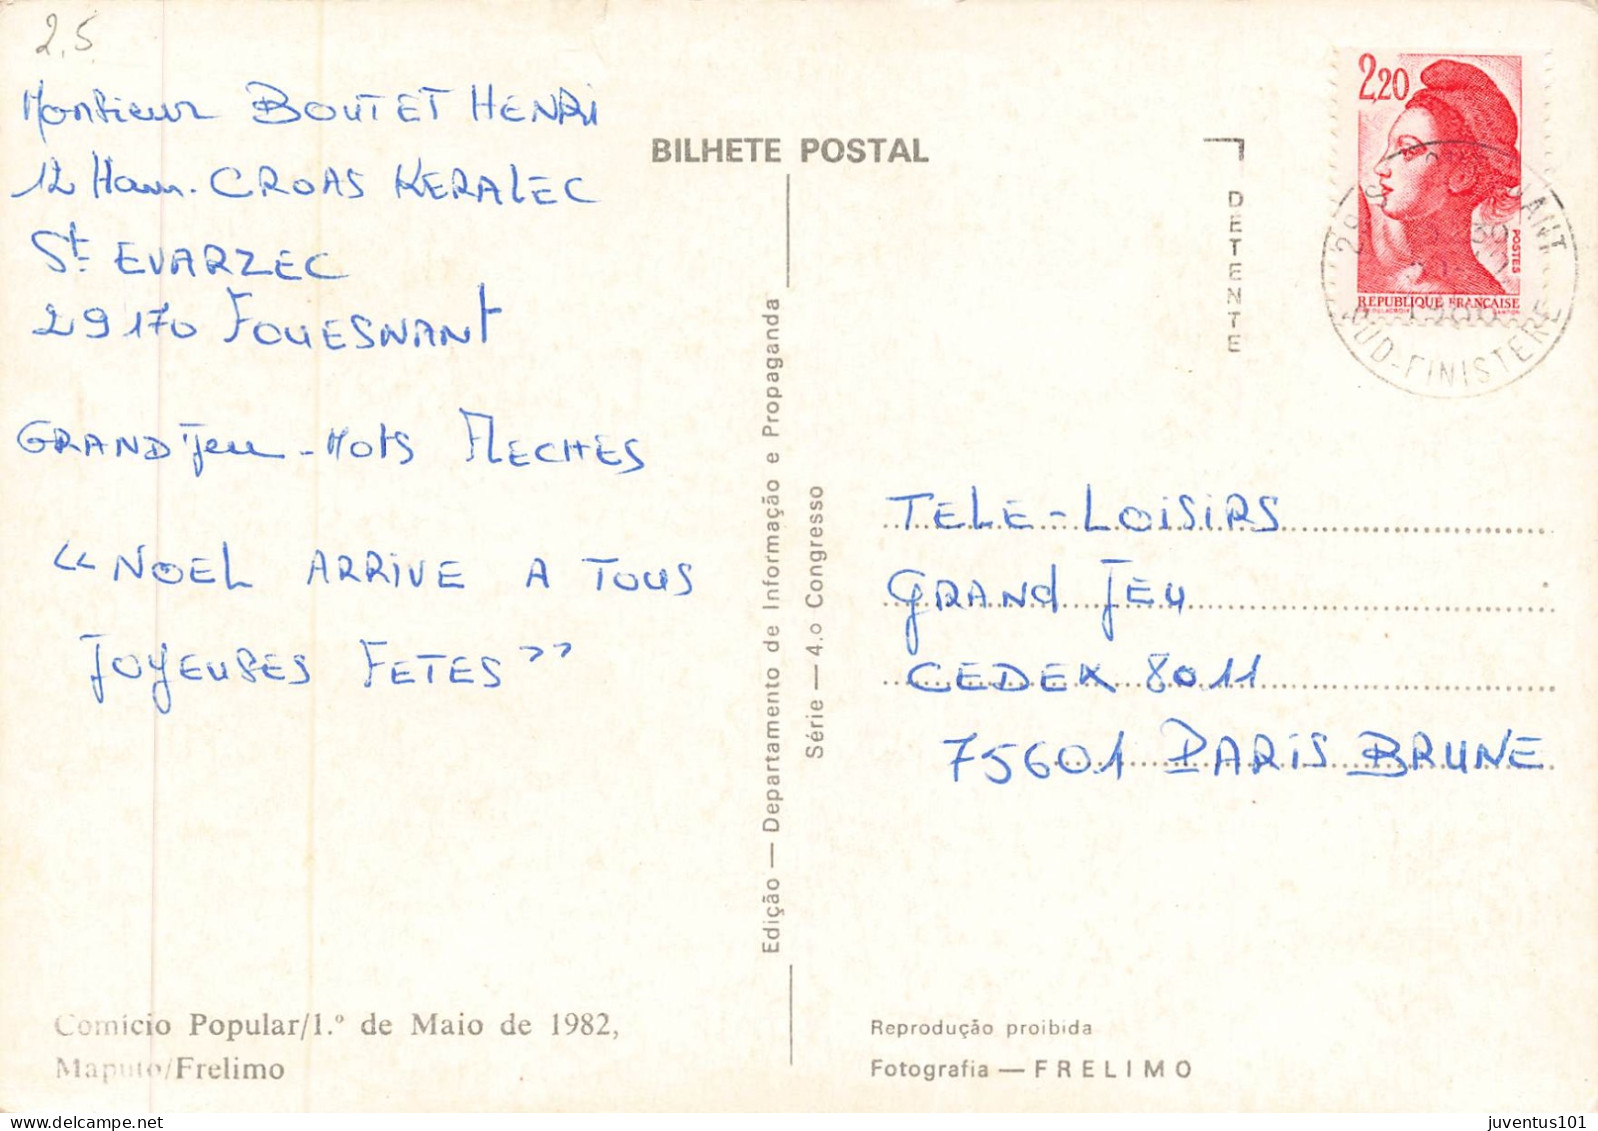 2,5
Monsieur BOUTET HENRI
12 Ham. CROAS KERALEC
St EVARZEC
29170 FOUESNANT
GRAND Jeu - Mots FLECHES
“ NOEL ARRIVE A TOUS
JOYEUSES FETES ”
Comício Popular/1.º de Maio de 1982,
Maputo/Frelimo
BILHETE POSTAL
Edição — Departamento de Informação e Propaganda
Série — 4.o Congresso
DETENTE
2,20
POSTES
REPUBLIQUE FRANÇAISE
SUD-FINISTERE
TELE-LOISIRS
GRAND JEU
CEDEX 8011
75601 PARIS BRUNE
Reprodução proibida
Fotografia — FRELIMO
juventus101